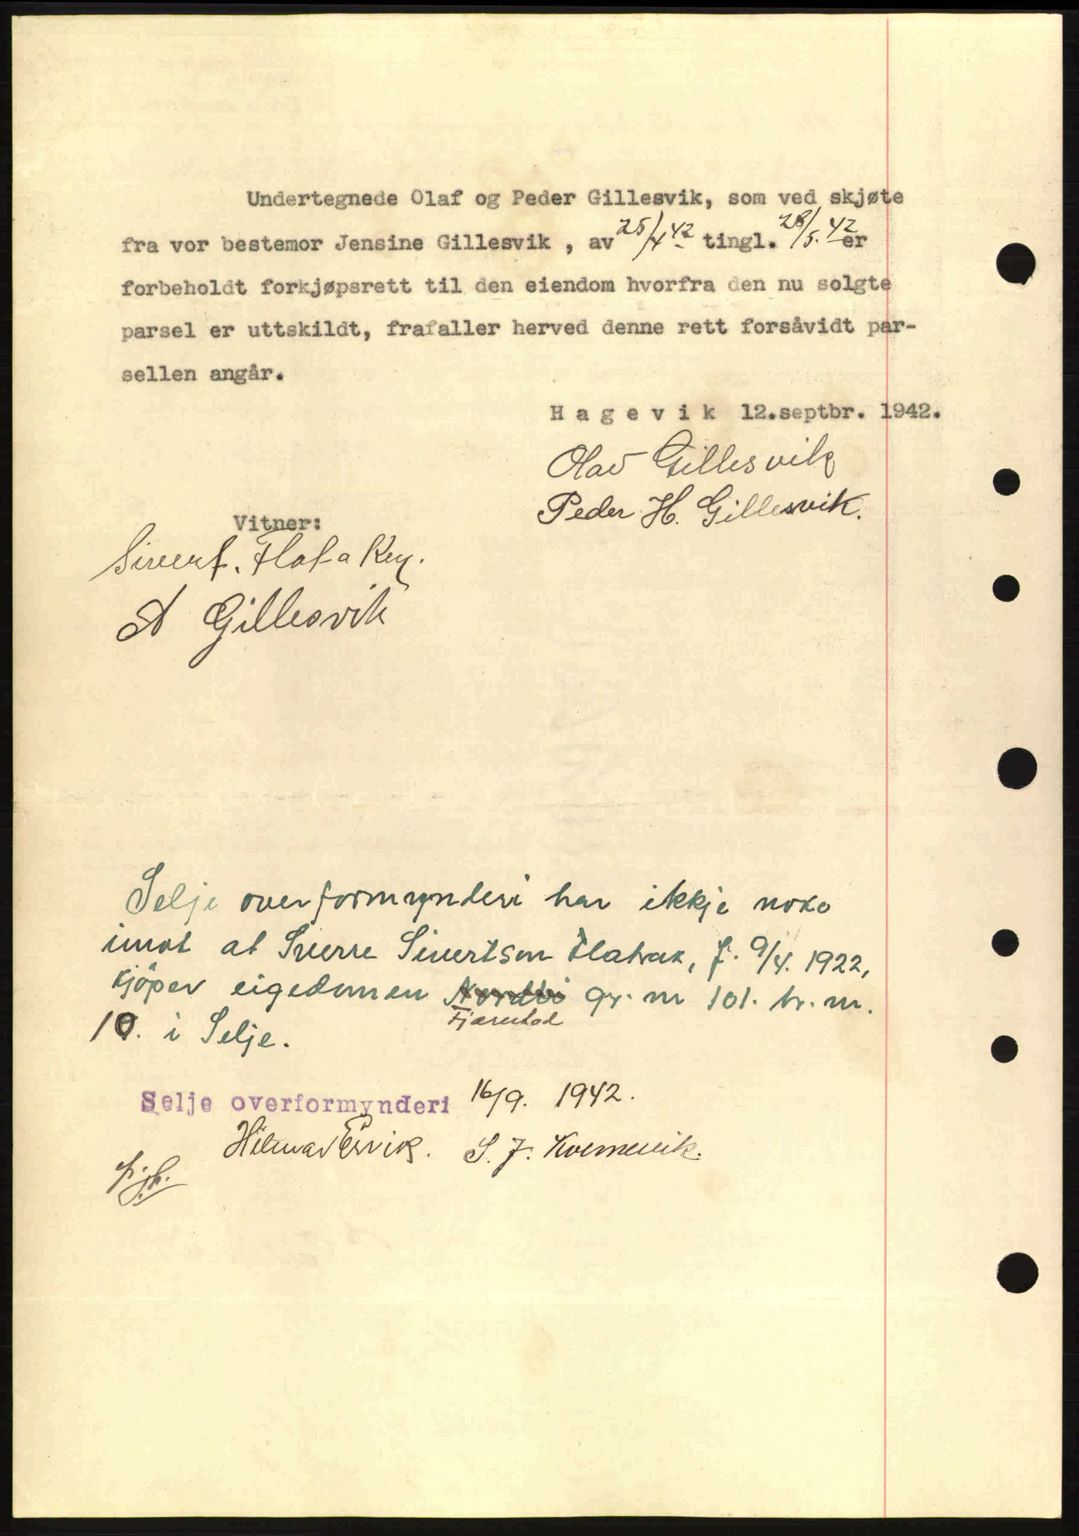 Undertegnede Olaf og Peder Gillesvik, som ved skjøte
fra vor bestemor Jensine Gillesvik , av 25/4 42 tingl. 28/5. 42 er
forbeholdt forkjøpsrett til den eiendom hvorfra den nu solgte
parsel er uttskildt, frafaller herved denne rett forsåvidt par-
sellen angår.
H a g e v i k 12.septbr. 1942.
Olav Gillesvik
Peder H. Gillesvik.
Vitner:
Sivert. Flatak
A Gillesvik
Selje overformynderi har ikkje noko
imot at Sverre Sivertson Flatrak, f. 9/4. 1922,
kjöper eigedomen Nordbö gr. nr 101. br. nr.
Fjærestad
10. i Selje.
Selje overformynderi 16/9. 1942.
Hilmar Ervik. S. J. Kvernevik.